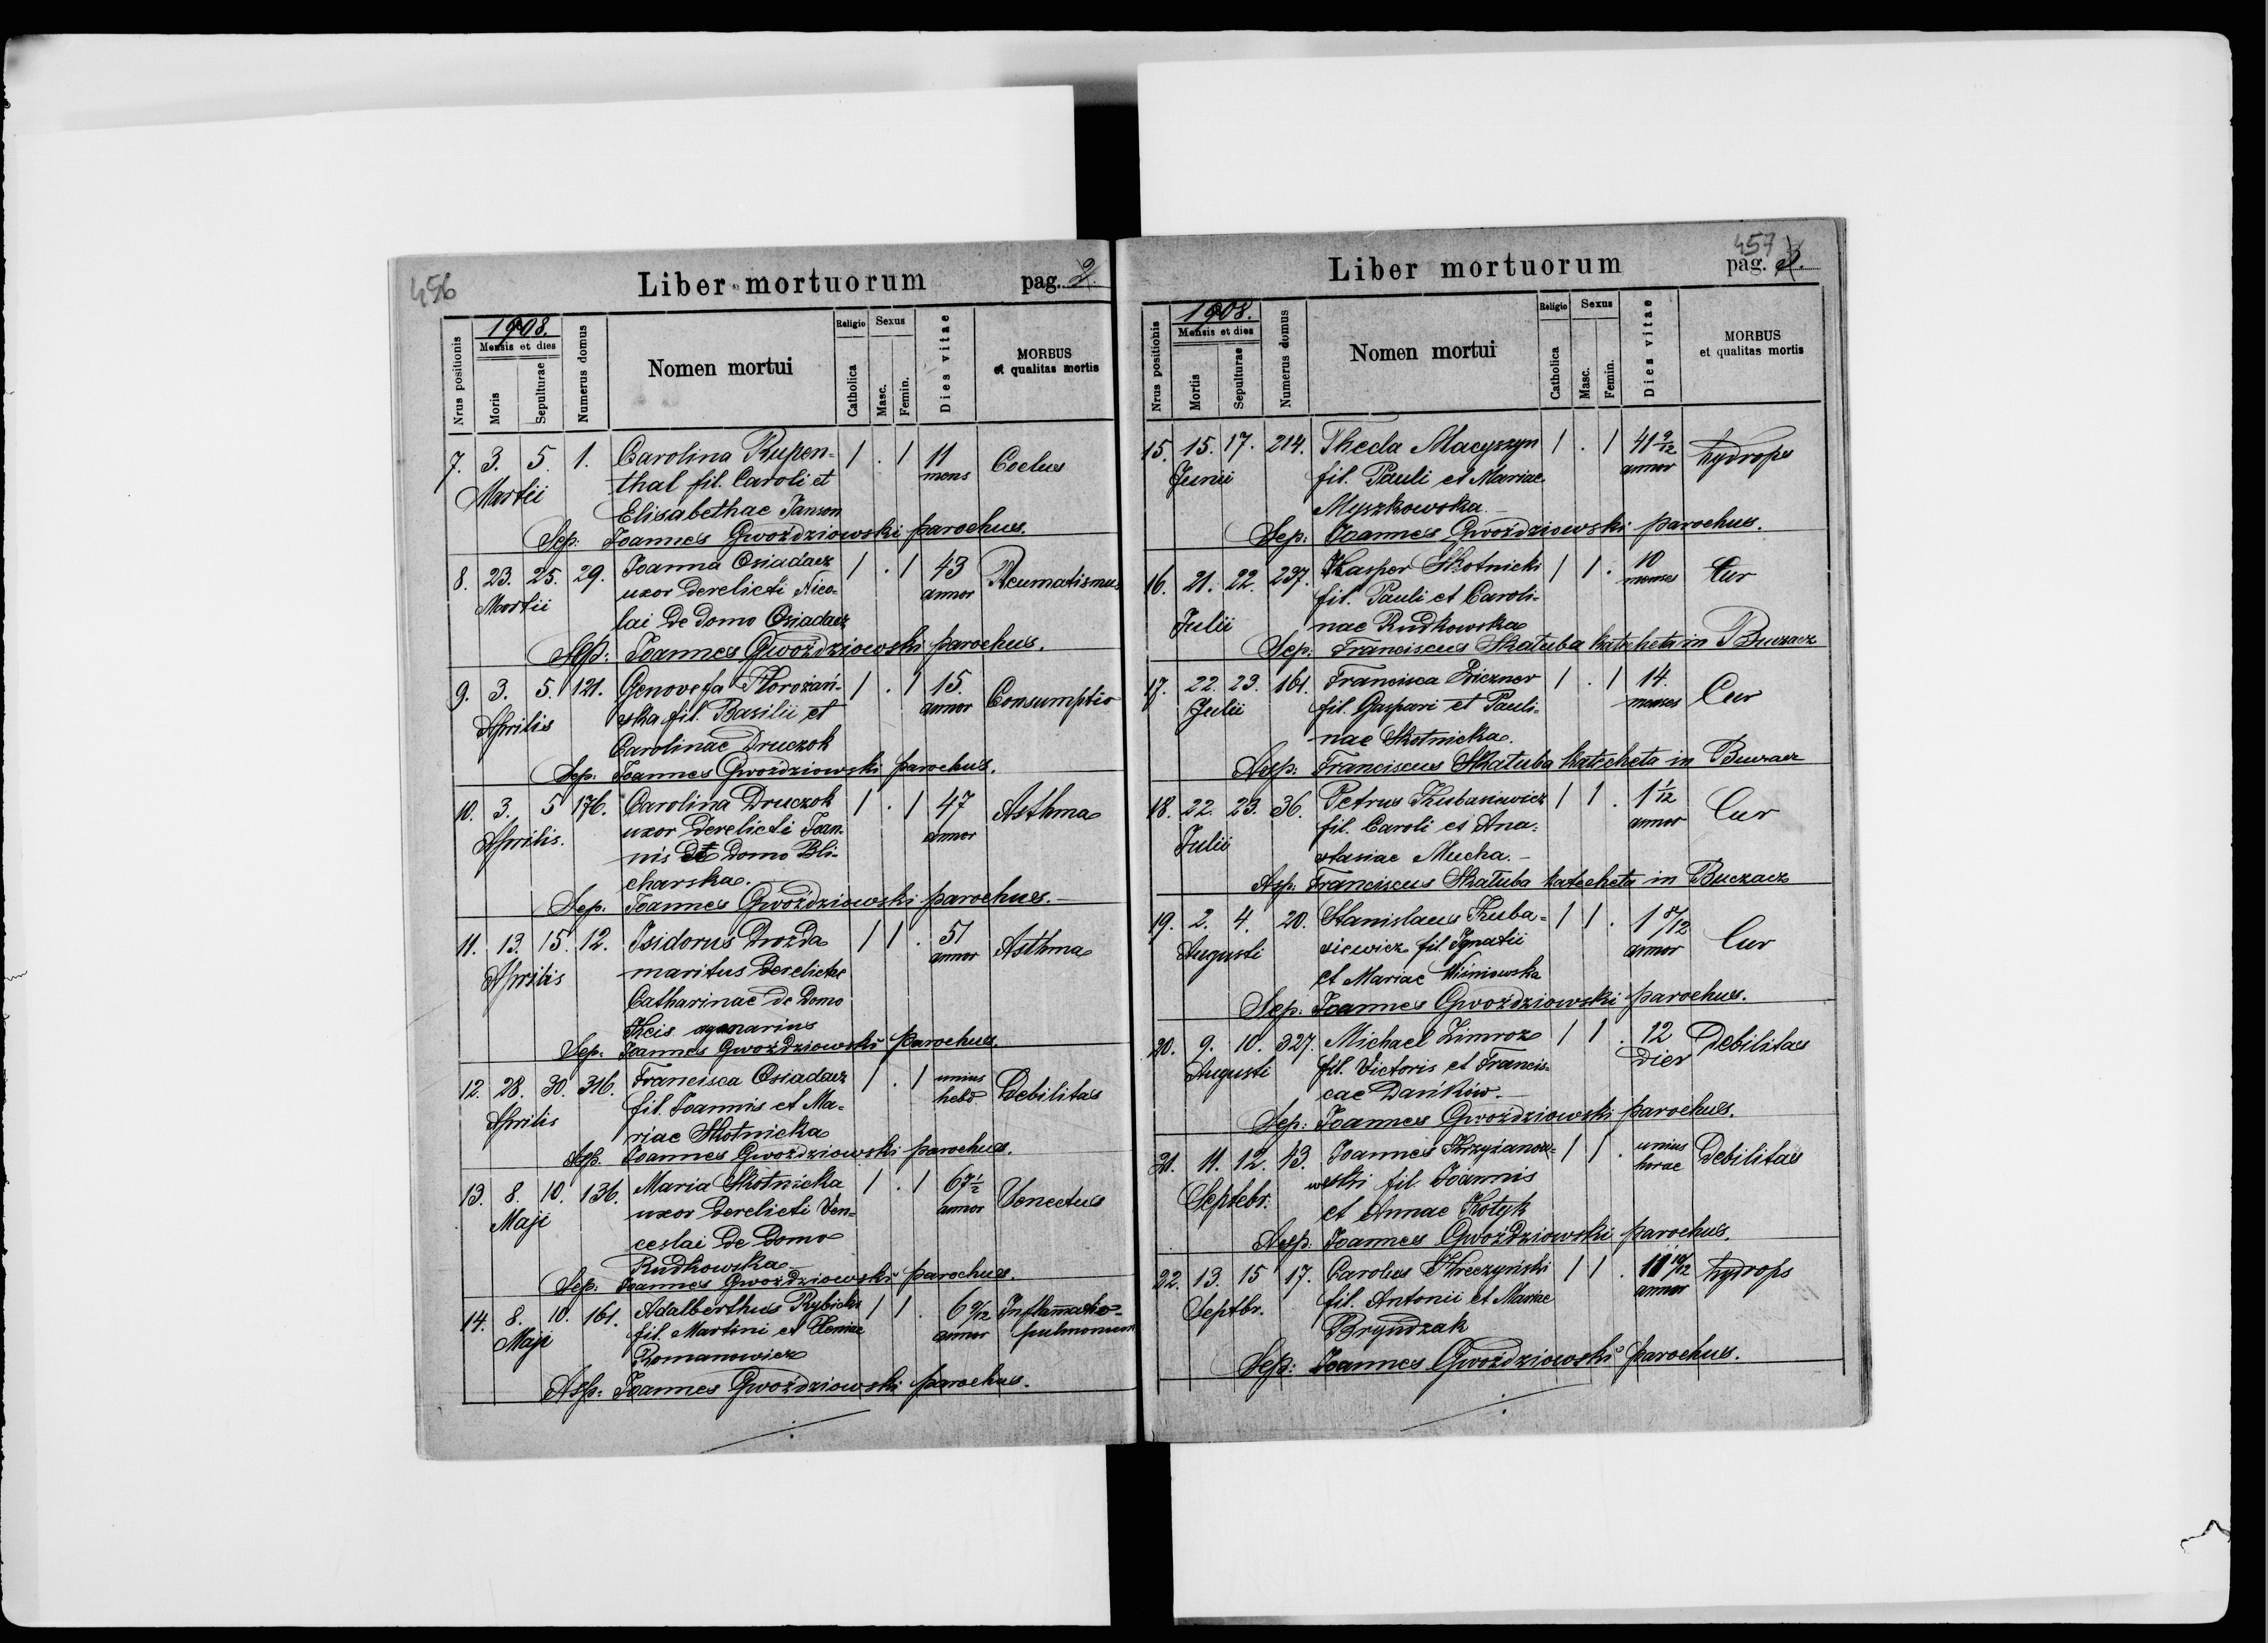 456
Liber mortuorum pag. 2
Nrus positionis
1908.
Mensis et dies
Moris
Sepulturae
Numerus domus
Nomen mortui
Religio
Catholica
Sexus
Masc.
Femin.
Dies vitae
MORBUS
et qualitas mortis
7. 3. 5. 1. Carolina Rupen- 1 . 1 11 Coclus
Martii thal fil. Caroli et mens
Elisabethae Janson
Sep: Joannes Gwoździowski parochus.
8. 23. 25. 29. Joanna Osiadacz 1 . 1 43 Reumatismus
Martii uxor derelicti Nico- annor
lai de domo Osiadacz
Sep: Joannes Gwoździowski parochus.
9. 3. 5. 121. Genovefa Horożań- 1 . 1 15. Consumptio
Aprilis ska fil. Basilii et annor
Carolinae Druczok
Sep: Joannes Gwoździowski parochus.
10. 3. 5 176. Carolina Druczok 1 . 1 47 Asthma
Aprilis. uxor derelicti Joan- annor
nis de domo Bli-
charska.
Sep. Joannes Gwoździowski parochus.
11. 13. 15. 12. Isidorus Drozda 1 1 . 51 Asthma
Aprilis maritus derelictae annor
Catharinae de domo
Kcis
Sep. Joannes Gwoździowski parochus.
12. 28. 30. 316. Francisca Osiadacz 1 . 1 unius Debilitas
Aprilis fil. Joannis et Ma- hebd.
riae Skotnicka
Sep. Joannes Gwoździowski parochus.
13. 8. 10. 136. Maria Skotnicka 1 . 1 67 1/2 Senectus
Maji uxor derelicti Ven- annor
ceslai de domo
Rudkowska
Sep. Joannes Gwoździowski parochus.
14. 8. 10. 161. Adalberthus Rybicki 1 1 . 6 9/12 Inflammatio
Maji fil. Martini et annor pulmonum
Romanowicz
Sep: Joannes Gwoździowski parochus.
457
Liber mortuorum pag. 3.
Nrus positionis
1908.
Mensis et dies
Mortis
Sepulturae
Numerus domus
Nomen mortui
Religio
Catholica
Sexus
Masc.
Femin.
Dies vitae
MORBUS
et qualitas mortis
15. 15. 17. 214. Thecla Macyszyn 1 . 1 41 9/12 hydrops
Junii fil. Pauli et Mariae annor
Myszkowska.
Sep: Joannes Gwoździowski parochus.
16. 21. 22. 237. Kasper Skotnicki 1 1 . 10 Cur
Julii fil. Pauli et Caroli- menses
nae Rudkowska
Sep: Franciscus Skałuba katecheta in Buczacz
17. 22. 23. 161. Francisca Ziczner 1 . 1 14. Cur
Julii fil. Gaspari et Pauli- menses
nae Skotnicka.
Sep: Franciscus Skałuba katecheta in Buczacz
18. 22. 23. 36. Petrus Kubasiewicz 1 1 . 1 1/12 Cur
Julii fil. Caroli et Ana- annor
stasiae Mucha.
Sep: Franciscus Skałuba katecheta in Buczacz
19. 2. 4. 20. Stanislaus Kuba- 1 1 . 1 8/12 Cur
Augusti siewicz fil. Ignatii annor
et Mariae Wiśniowska
Sep: Joannes Gwoździowski parochus.
20. 9. 10. 327. Michael Zimroz 1 1 . 12 Debilitas
Augusti fil. Victoris et Francis- dier
cae Dańków.
Sep: Joannes Gwoździowski parochus.
21. 11. 12. 43. Joannes Krzyżanow- 1 1 . unius Debilitas
Septebr. wski fil. Joannis horae
et Annae Kotyk
Sep: Joannes Gwoździowski parochus.
22. 13. 15 17. Carolus Kreczyński 1 1 . 11 10/12 hydrops
Septbr. fil. Antonii et Mariae annor
Bryndzak
Sep: Joannes Gwoździowski parochus.